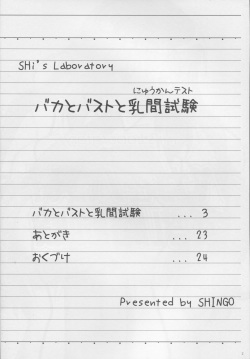 SHi's Laboratory
にゅうかんテスト
バカとバストと乳間試験
バカとバストと乳間試験 ... 3
あとがき ... 23
おくづけ ... 24
Presented by SHINGO